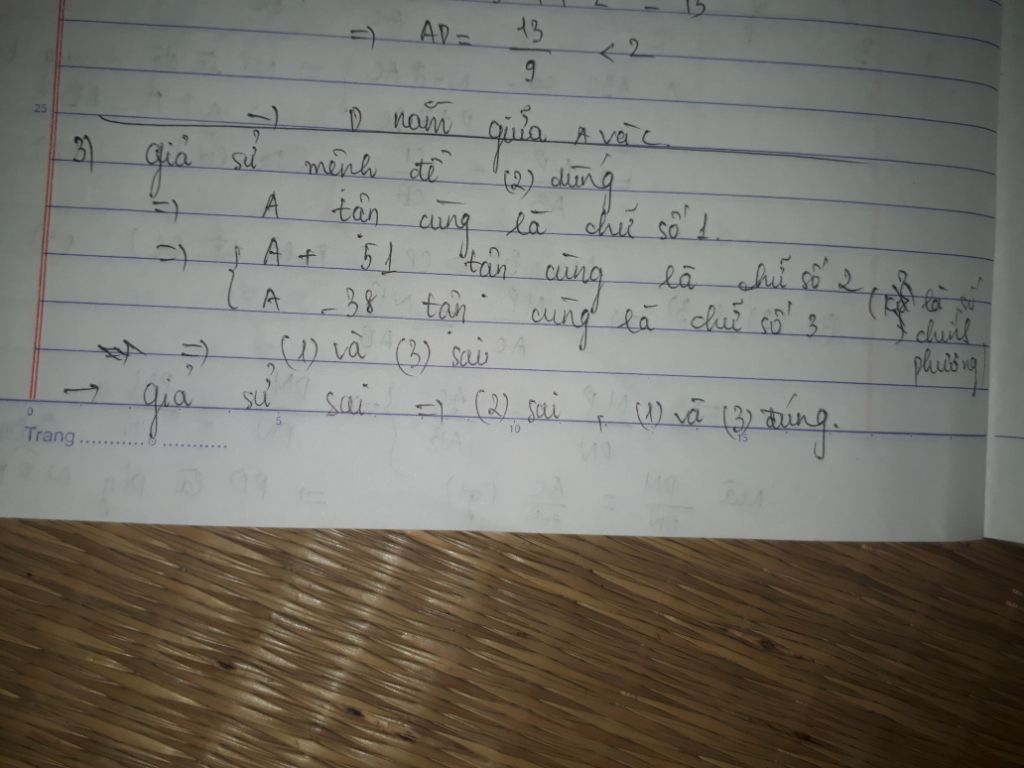 = 13
=) AD = 13/9 < 2
25
→ D nằm giữa A và C.
3) giả sử mệnh đề (2) đúng
=) A tận cùng là chữ số 1.
=) { A + 51 tận cùng là chữ số 2
A - 38 tận cùng là chữ số 3 là số chính phương)
=) (1) và (3) sai
→ giả sử sai =) (2) sai, (1) và (3) đúng.
0 5 10 15
Trang